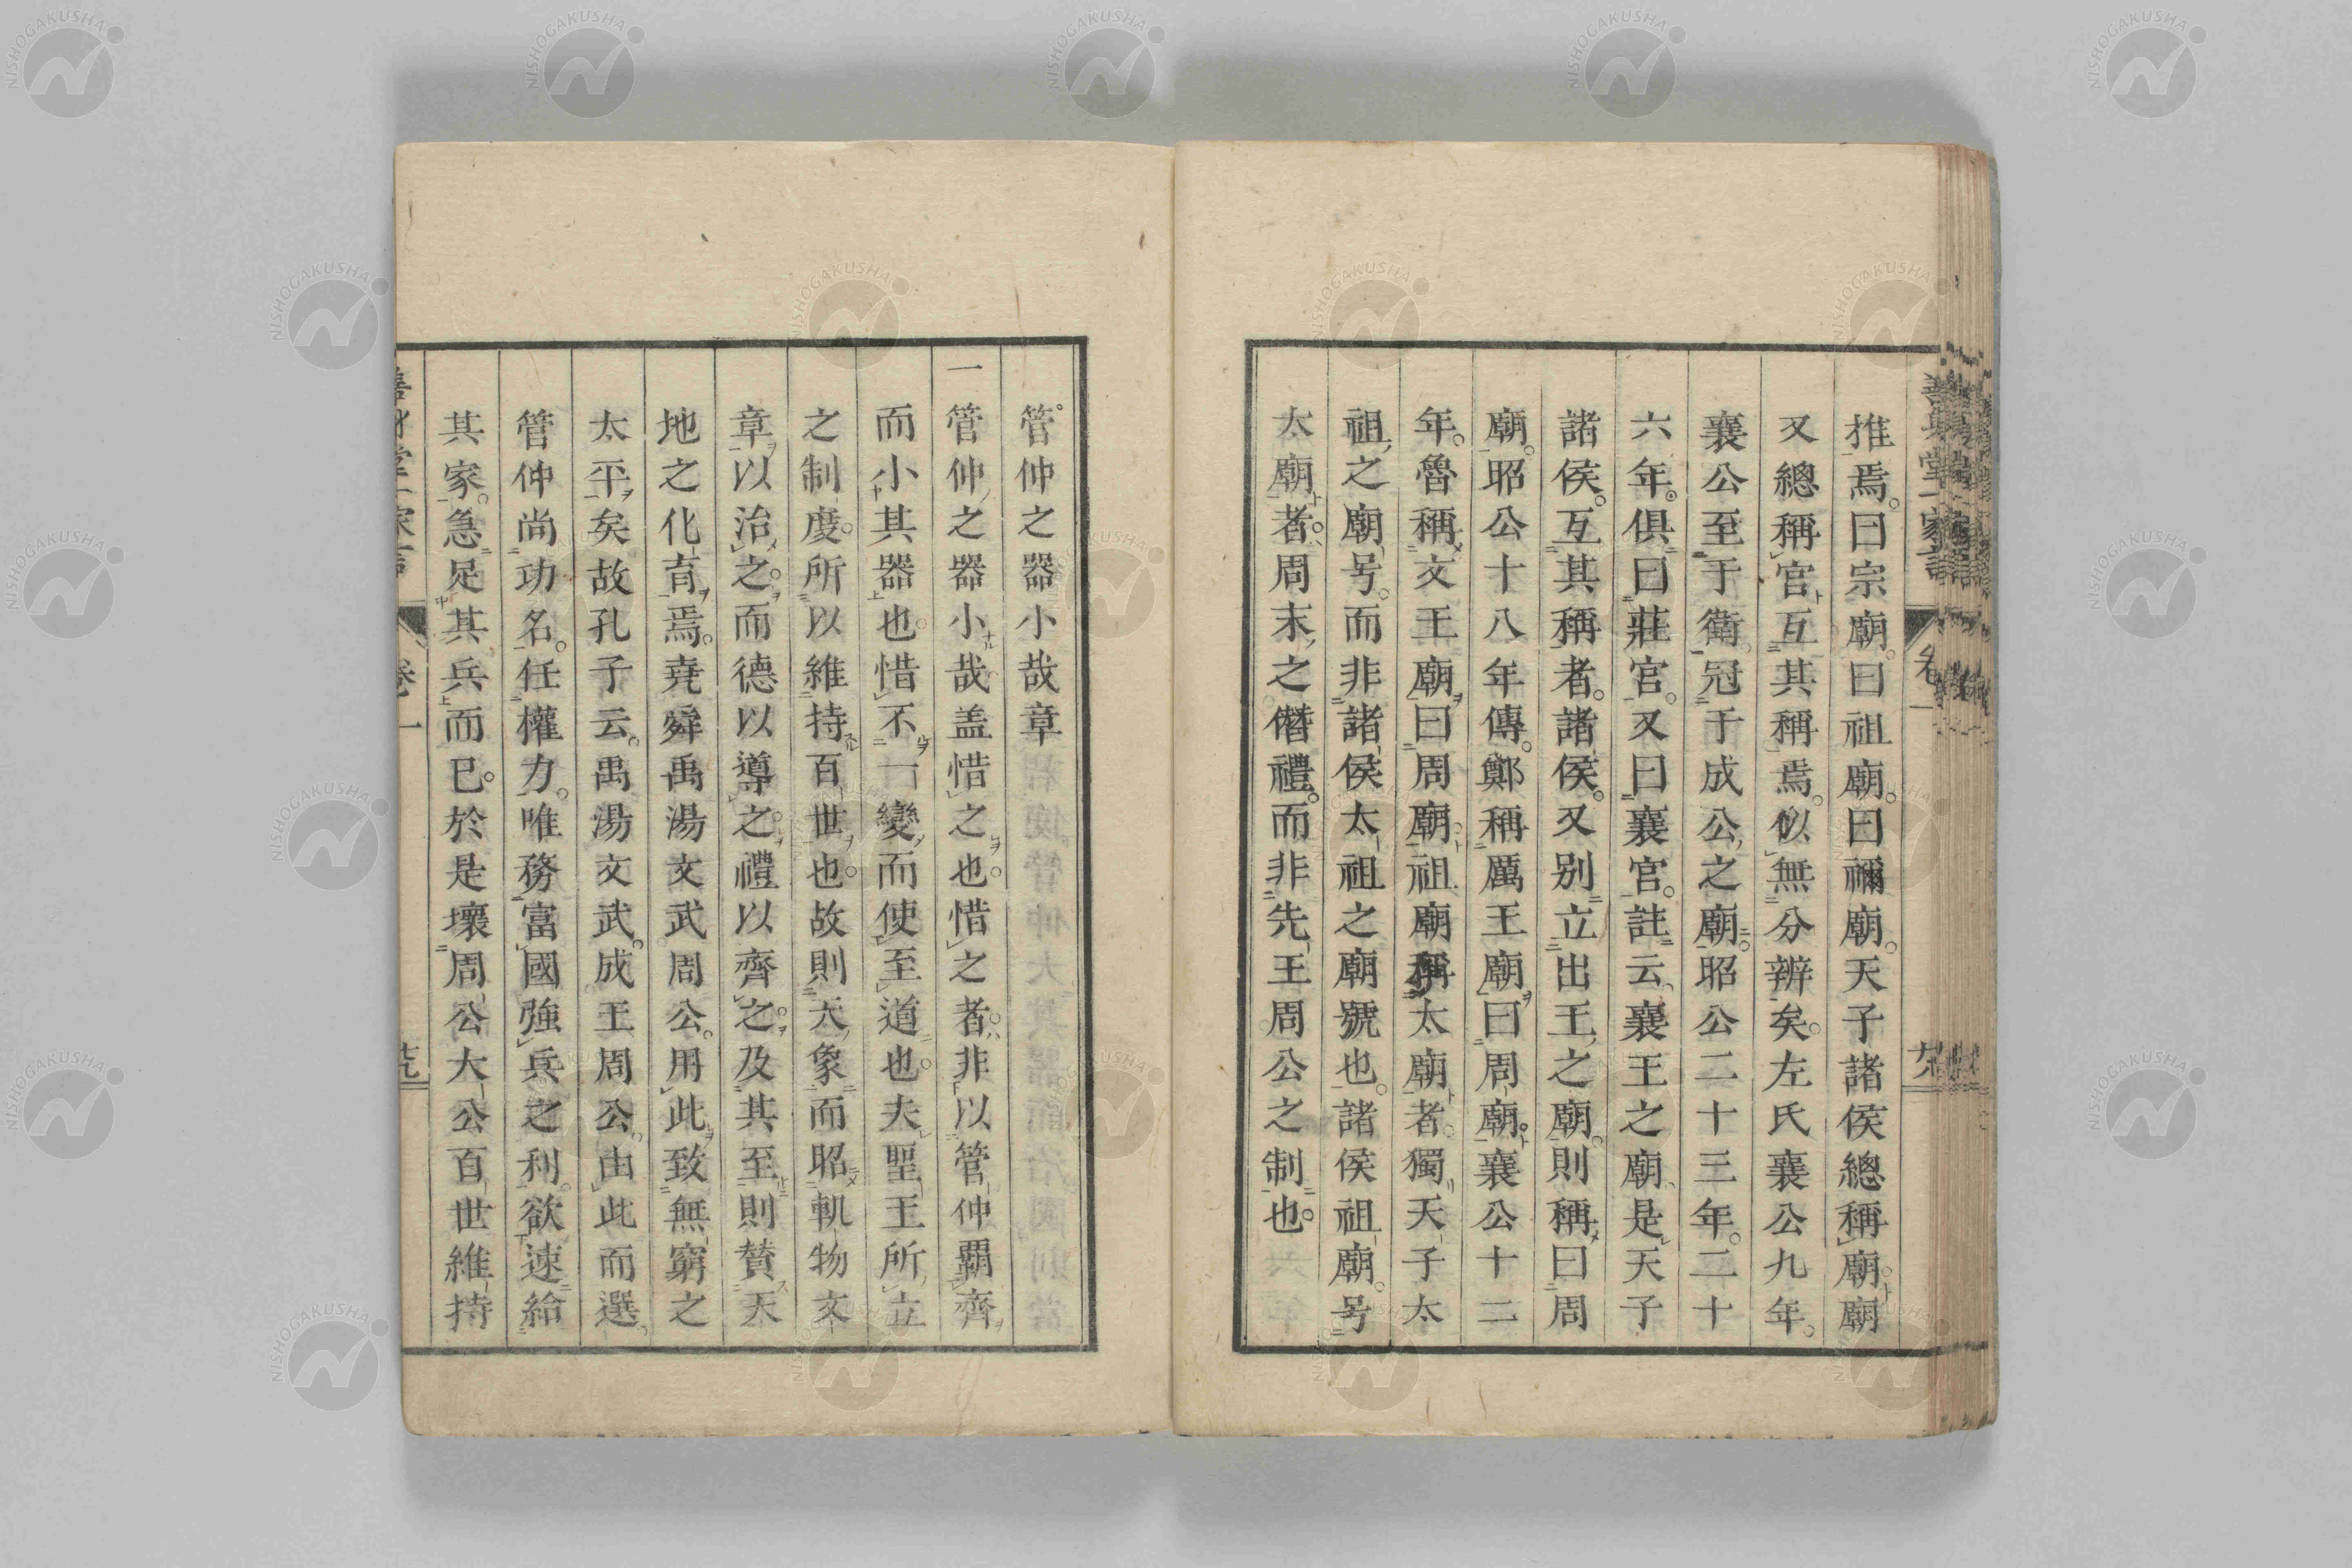 推焉。曰宗廟。曰祖廟。曰禰廟。天子諸侯總稱廟。廟
又總稱宮互其稱焉。似無分辨矣。左氏襄公九年。
襄公至于衛。冠于成公之廟。昭公二十三年。二十
六年。俱曰莊宮。又曰襄宮。註云。襄王之廟。是天子
諸侯。互其稱者。諸侯。又別立出王之廟。則稱曰周
廟。昭公十八年傳。鄭稱厲王廟曰周廟。襄公十二
年。魯稱文王廟曰周廟。祖廟稱太廟者。獨天子太
祖之廟号。而非諸侯太祖之廟號也。諸侯祖廟。号
太廟者。周末之僭禮。而非先王周公之制也。
卷一
管仲之器小哉章
一管仲之器小哉。盖惜之也。惜之者。非以管仲覇齊
而小其器也。惜不一變而使至道也。夫聖王所立
之制度。所以維持百世也。故則天象而昭軌物文
章。以治之。而德以導之。禮以齊之。及其至則賛天
地之化育焉。堯舜禹湯文武周公。用此致無窮之
太平矣故孔子云。禹湯文武。成王周公。由此而選。
管仲尚功名。任權力。唯務富國強兵之利。欲速給
其家。急足其兵而已。於是壞周公大公百世維持
卷一